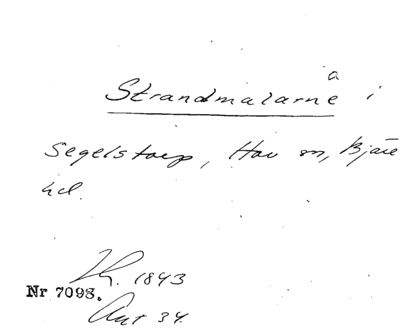 a
Strandmalarne i
Segelstorp, Hov sn, Bjäre
hd.
Lh. 1843
Nr 7098.
Ant 34.